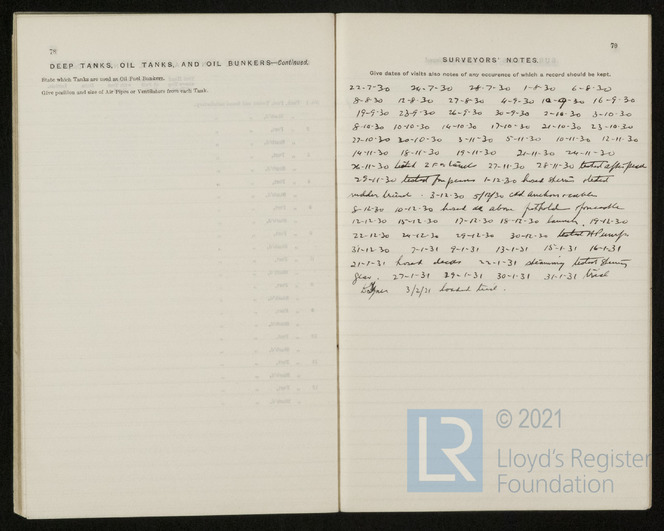 78
DEEP TANKS, OIL TANKS, AND OIL BUNKERS—Continued.
State which Tanks are used as Oil Fuel Bunkers.
Give position and size of Air Pipes or Ventilators from each Tank.
79
SURVEYORS' NOTES.
Give dates of visits also notes of any occurence of which a record should be kept.
22-7-30 24-7-30 28-7-30 1-8-30 6-8-30
8-8-30 12-8-30 27-8-30 4-9-30 12-9-30 16-9-30
19-9-30 23-9-30 26-9-30 30-9-30 2-10-30 3-10-30
8-10-30 10-10-30 14-10-30 17-10-30 21-10-30 23-10-30
27-10-30 30-10-30 3-11-30 5-11-30 10-11-30 12-11-30
14-11-30 18-11-30 19-11-30 21-11-30 24-11-30
26-11-30 tested 27-11-30 28-11-30 tested after peak
29-11-30 tested fore 1-12-30 hosed tested
rudder 3-12-30 5/12/30 anchors cable
8-12-30 10-12-30 hosed above
12-12-30 15-12-30 17-12-30 18-12-30 Launch, 19-12-30
22-12-30 24-12-30 29-12-30 30-12-30 tested
31-12-30 7-1-31 9-1-31 13-1-31 15-1-31 16-1-31
21-1-31 hosed decks 22-1-31 steaming tested steering
gear, 27-1-31 29-1-31 30-1-31 31-1-31 trial
3/2/31 loaded trial.
© 2021
LR
Lloyd's Register
Foundation